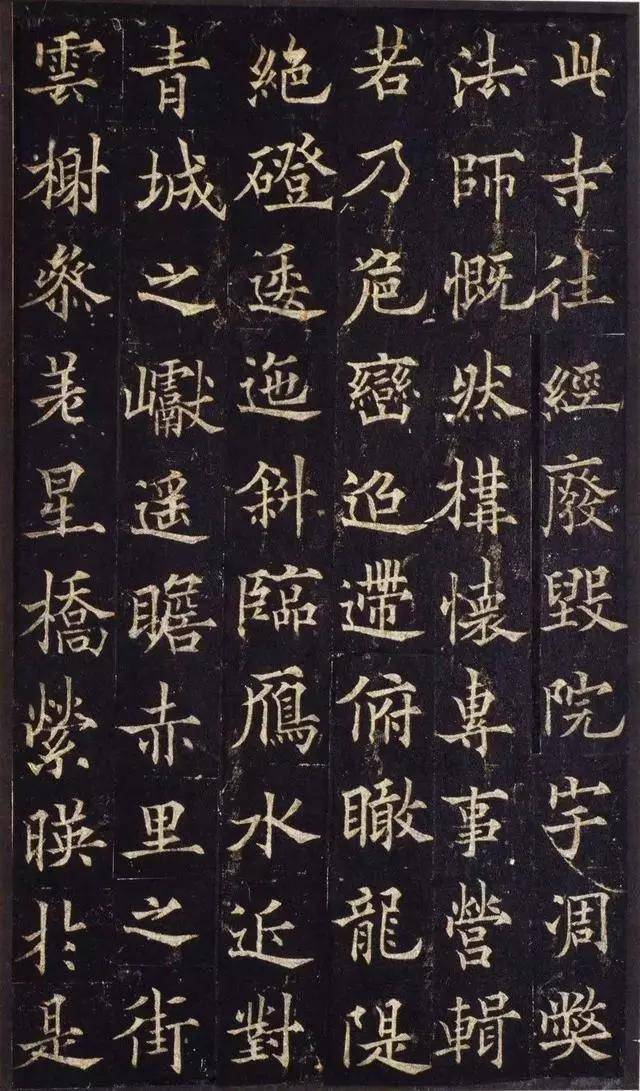 此寺往經廢毀院宇凋弊
法師慨然構懷專事營輯
若乃危巒迢遰俯瞰龍隄
絕磴逶迤斜臨鴈水近對
青城之巘遥瞻赤里之街
雲榭叅差星橋縈暎於是